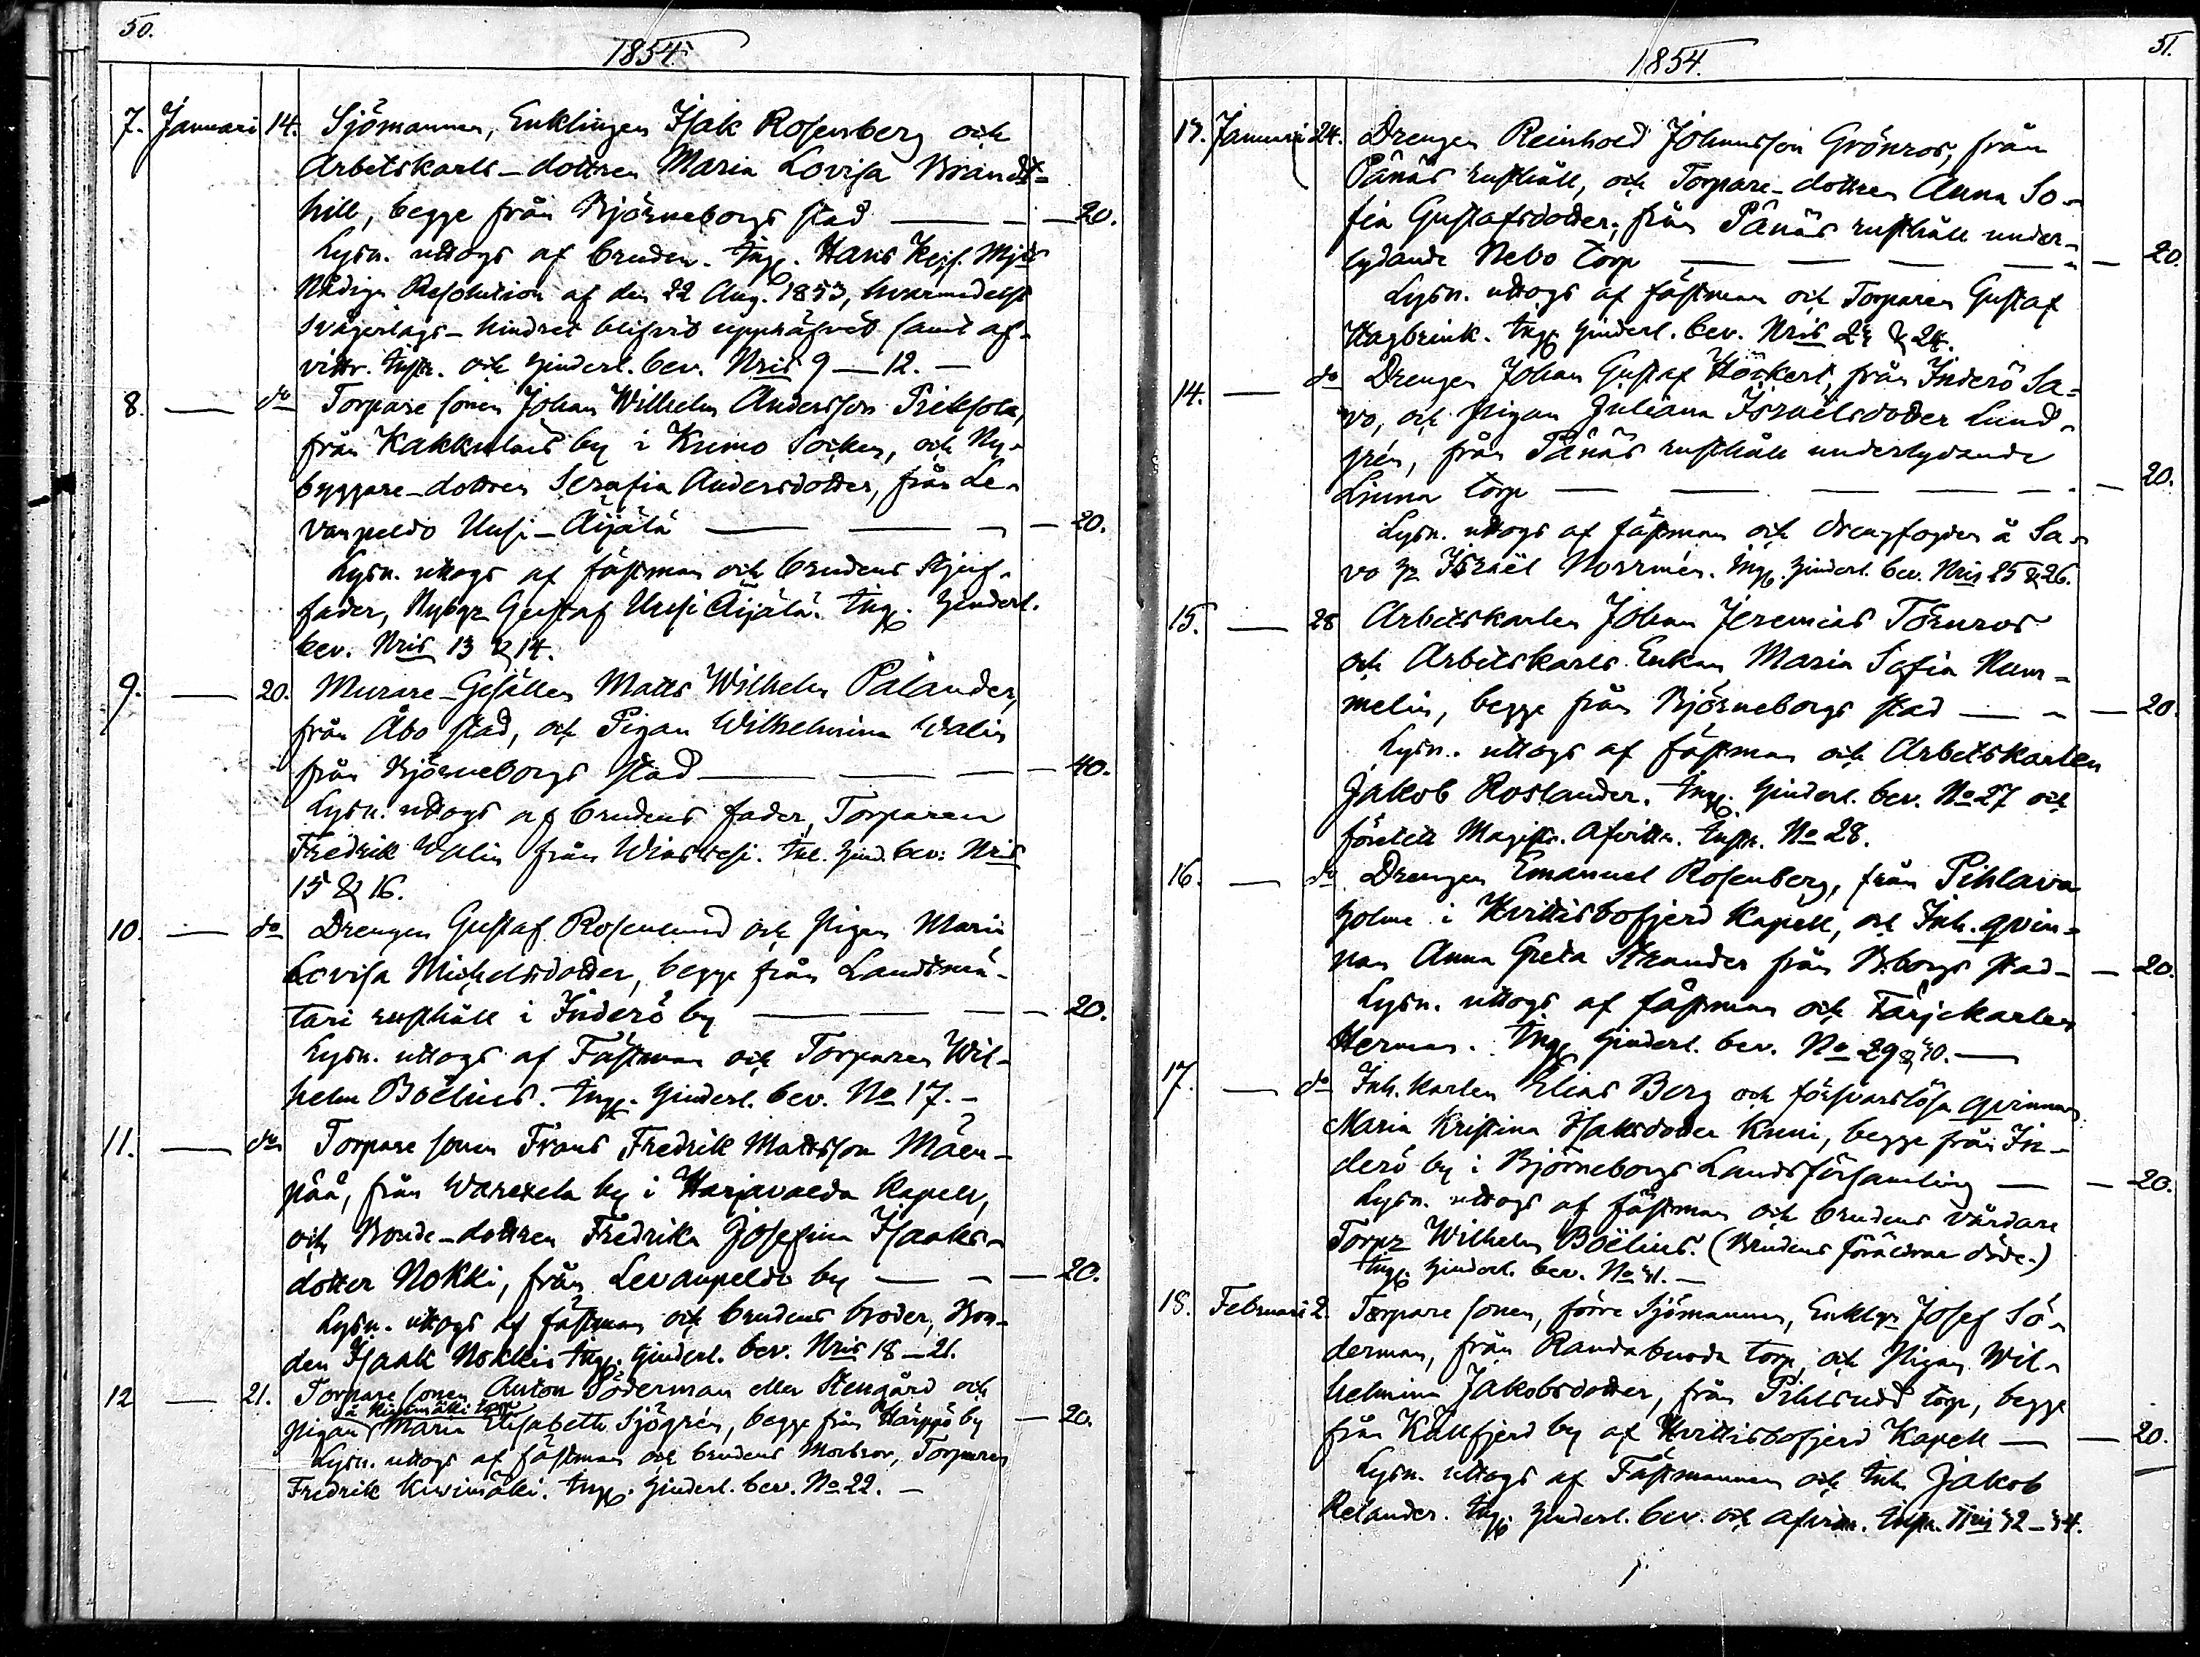 50.
1854.
7. Januari 14. Sjömannen, Enklingen Isak Rosenberg och
Arbetskarls-dottren Maria Lovisa Brandt-
hill, begge från Björneborgs stad — 20.
Lysn. uttogs af bruden. Ing. Hans Kejs. Mjts
Nådiga Resolution af den 22 Aug. 1853, hvarmedelst
Svågerlags-hindret blifvit upphäfvet samt af-
vittr. inst. och hinderl. bev. Nris 9–12. –
8. — do Torpare sonen Johan Wilhelm Andersson Prihsola,
från Kakkulais by i Kumo Socken, och Ny-
byggare-dottren Serafia Andersdotter, från Le-
vanpeldo Uusi-Äijälä — 20.
Lysn. uttogs af fästman och brudens stjuf-
fader, Nybygr Gustaf Uusi Äijälä. Ing. hinderl.
bev. Nris 13 & 14.
9. — 20. Murare-Gesällen Matts Wilhelm Palander,
från Åbo stad, och Pigan Wilhelmina Walin
från Björneborgs stad — 40.
Lysn. uttogs af brudens fader, Torparen
Fredrik Walin från Wiasvesi. Inl. hind. bev. Nris
15 & 16.
10. — do Drengen Gustaf Rosenlund och Pigan Maria
Lovisa Michelsdotter, begge från Landtmä-
tari rusthåll i Inderö by — 20.
Lysn. uttogs af Fästman och Torparen Wil-
helm Boëlius. Ing. hinderl. bev. No 17. –
11. — do Torpare sonen Frans Fredrik Mattsson Mäen-
pää, från Warexela by i Harjavalda Kapell,
och Bonde-dottren Fredrika Josefina Isaaks-
dotter Nokki, från Levanpeldo by — 20.
Lysn. uttogs af fästman och brudens broder, Bon-
den Isaak Nokki. Ing. hinderl. bev. Nris 18–21.
12 — 21. Torpare sonen Anton Söderman eller Stengård och
å Kivimäki torp
Pigan Maria Elisabeth Sjögrén, begge från Harppö by — 20.
Lysn. uttogs af fästman och brudens Morbror, Torparen
Fredrik Kivimäki. Ing. hinderl. bev. No 22. –
51.
1854.
13. Januari 24. Drengen Reinhold Johansson Grönros, från
Pånäs rusthåll, och Torpare-dottren Anna So-
fia Gustafsdotter, från Pånäs rusthåll under-
lydande Nebo torp — 20.
Lysn. uttogs af fästman och Torparen Gustaf
Hagbrink. Ing. hinderl. bev. Nris 23 & 24.
14. — do Drengen Johan Gustaf Höckert, från Inderö Sa-
vo, och Pigan Juliana Israëlsdotter Lund-
grén, från Pånäs rusthåll underlydande
Linna torp — 20.
Lysn. uttogs af fästman och drengfogden å Sa-
vo gr Israël Norrmén. Ing. hinderl. bev. Nris 25 & 26.
15. — 28 Arbetskarlen Johan Jeremias Törnros
och Arbetskarls Enkan Maria Sofia Rum-
melin, begge från Björneborgs stad — 20.
Lysn. uttogs af fästman och Arbetskarlen
Jakob Roslander. Ing. hinderl. bev. No 27 och
företett Magistr. Afvittr. Instr. No 28.
16. — do Drengen Emanuel Rosenberg, från Pihlava
holme i Hvittisbofjerd Kapell, och Inh. qvin-
nan Anna Greta Strander från B:borgs stad — 20.
Lysn. uttogs af fästman och Färjekarlen
Herman. Ing. hinderl. bev. No 29 & 30. —
17. — do Inh. karlen Elias Berg och försvarslösa qvinnan
Maria Kristina Isaksdotter Knui, begge från In-
derö by i Björneborgs Landsförsamling — 20.
Lysn. uttogs af fästman och brudens vårdare
Torpr Wilhelm Boëlius. (Brudens föräldrar döde.)
Ing. hinderl. bev. No 31. —
18. Februari 2. Torpare sonen, förre Sjömannen, Enklgr Josef Sö-
derman, från Randabuoda torp, och Pigan Wil-
helmina Jakobsdotter, från Pihlsudd torp, begge
från Källfjerd by af Hvittisbofjerd Kapell — 20.
Lysn. uttogs af Fästmannen och Inh. Jakob
Relander. Ing. hinderl. bev. och afvittr. instr. Nris 32–34.